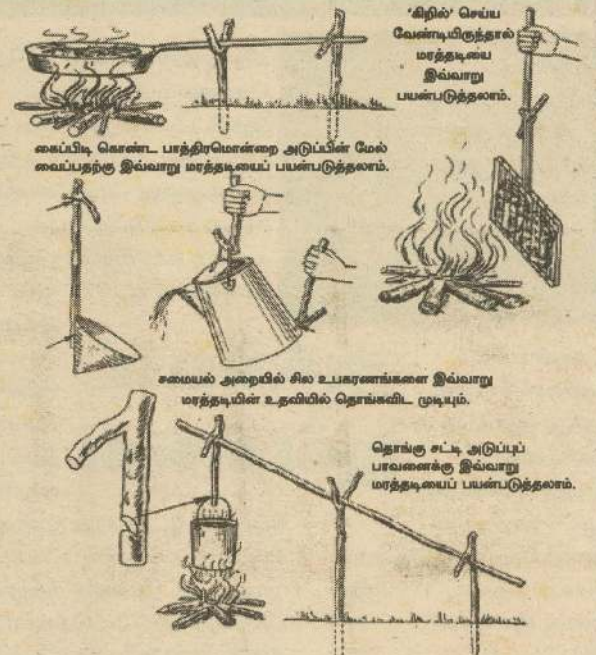 'கிறில்' செய்ய
வேண்டியிருந்தால்
மரத்தடியை
இவ்வாறு
பயன்படுத்தலாம்.
கைப்பிடி கொண்ட பாத்திரமொன்றை அடுப்பின் மேல்
வைப்பதற்கு இவ்வாறு மரத்தடியைப் பயன்படுத்தலாம்.
சமையல் அறையில் சில உபகரணங்களை இவ்வாறு
மரத்தடியின் உதவியில் தொங்கவிட முடியும்.
தொங்கு சட்டி அடுப்புப்
பாவனைக்கு இவ்வாறு
மரத்தடியைப் பயன்படுத்தலாம்.